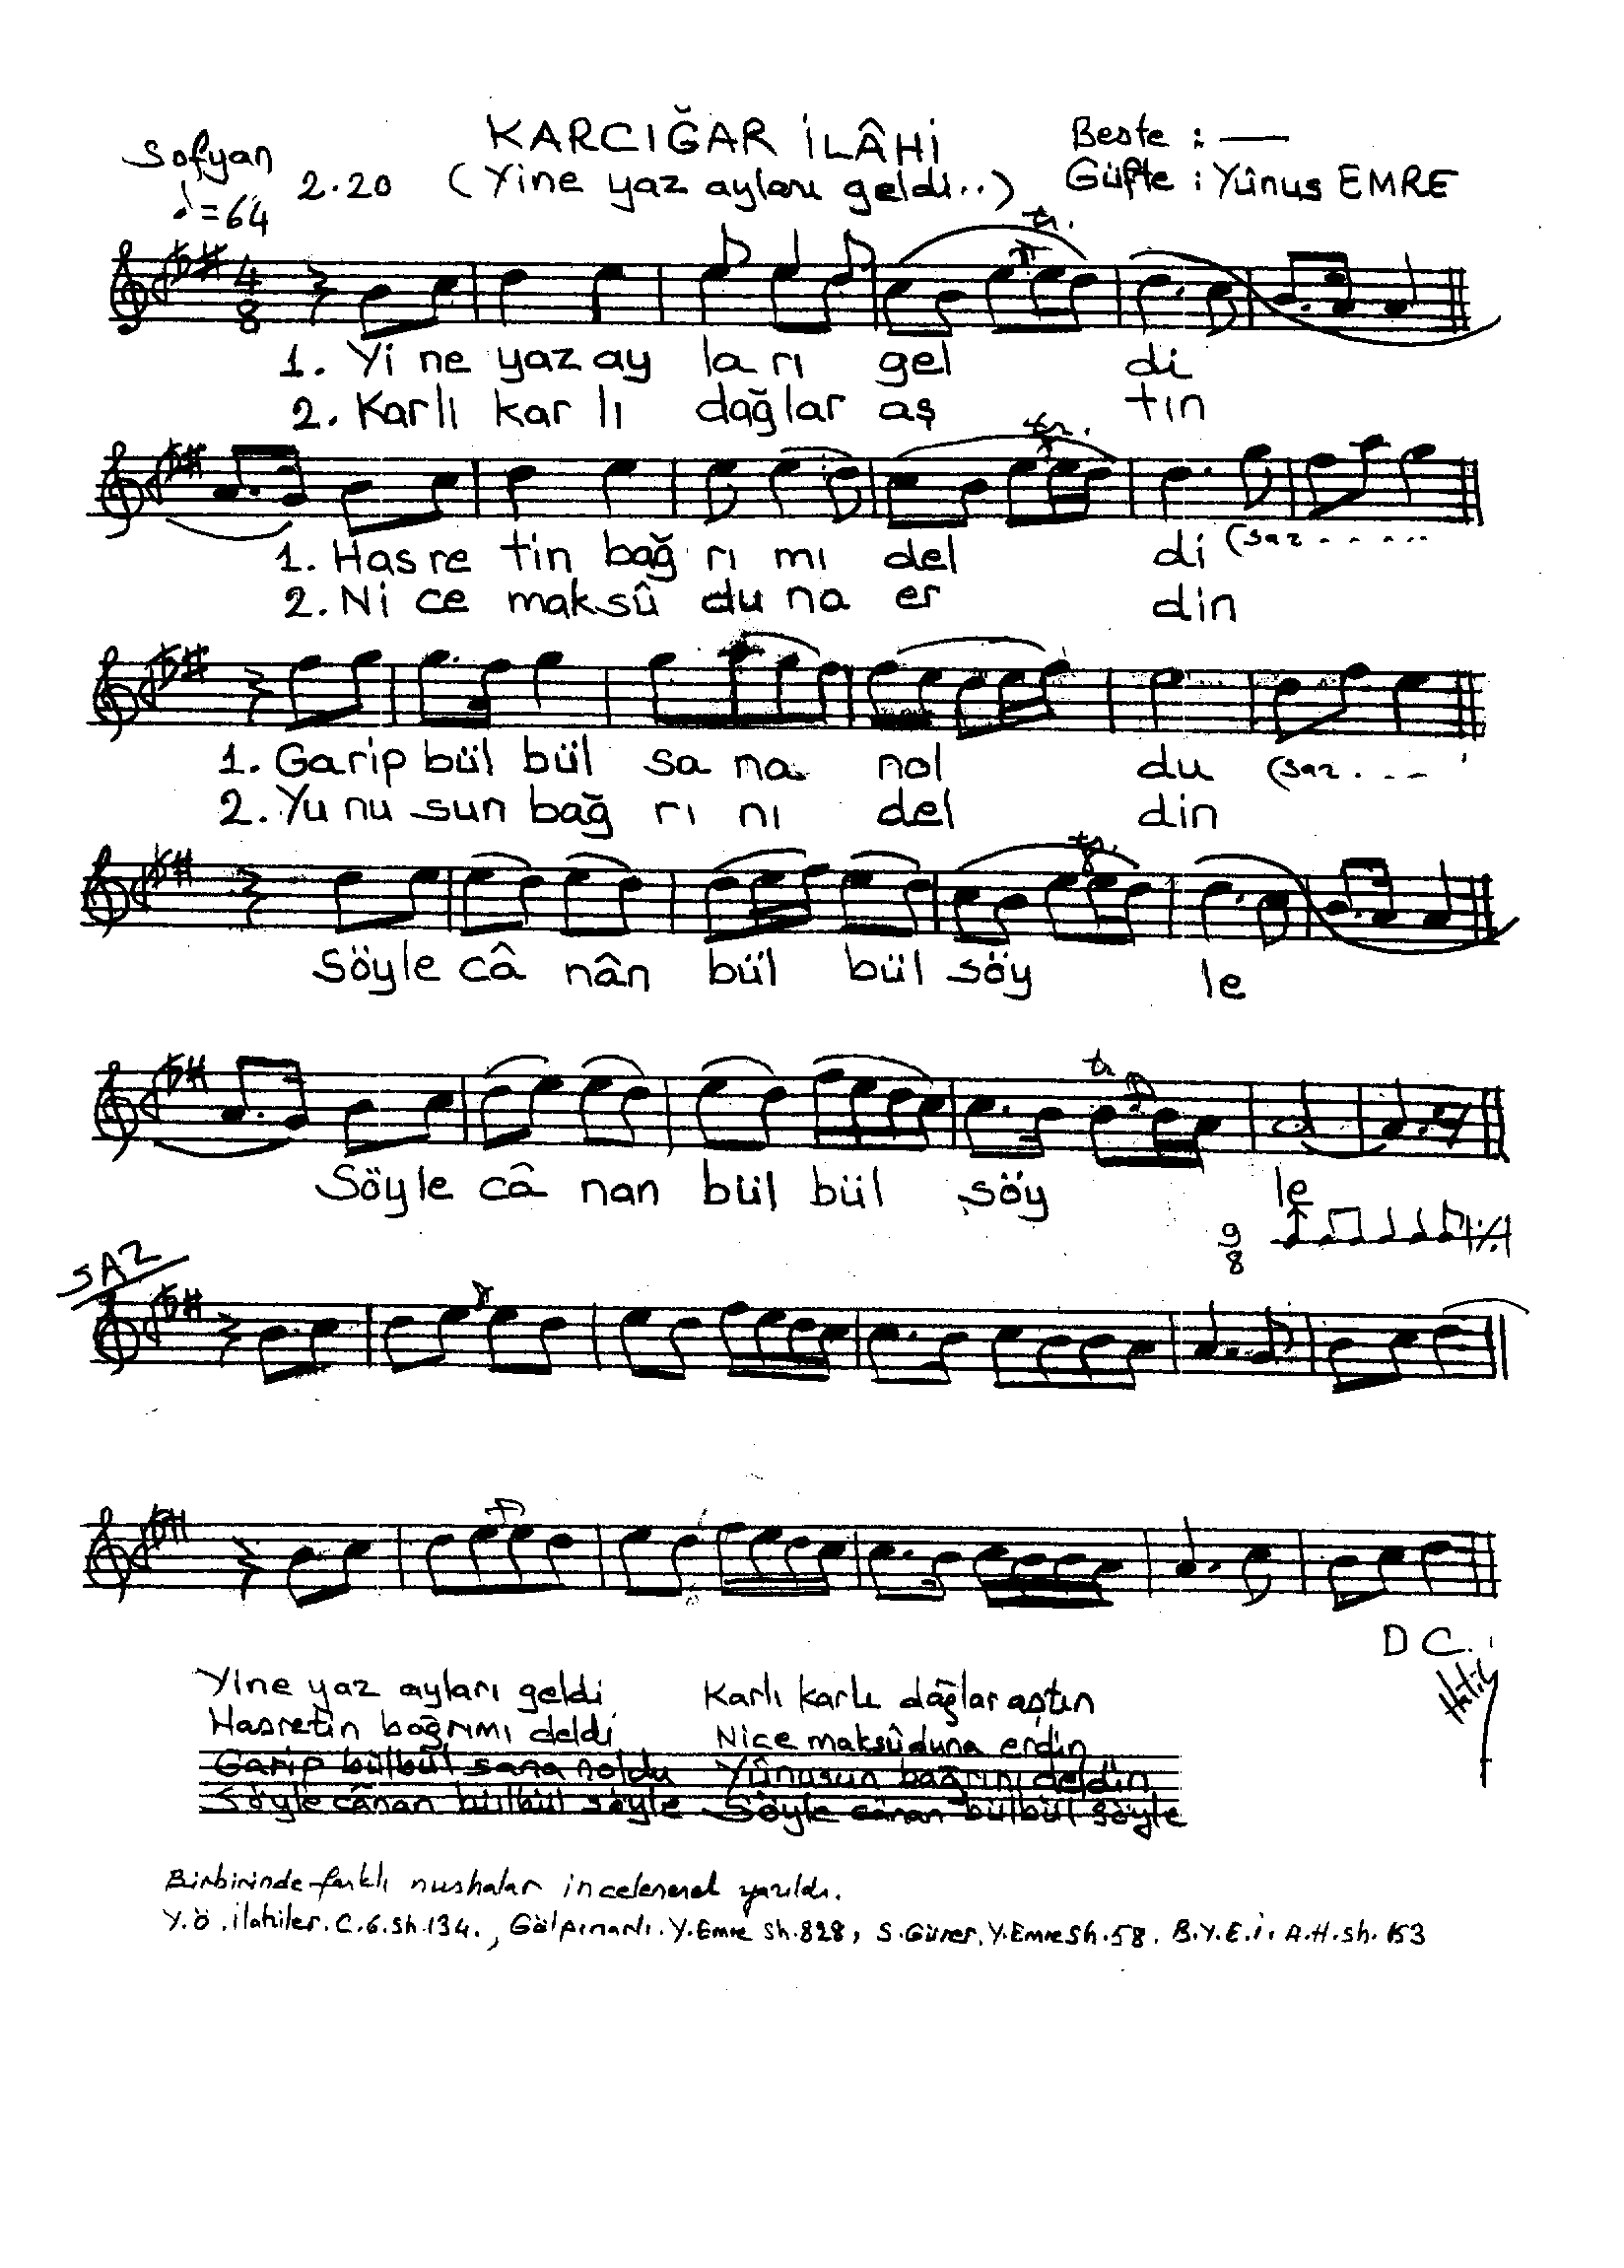 KARCIĞAR İLÂHİ
Beste : —
Sofyan
2.20 (Yine yaz ayları geldi..)
Güfte : Yûnus EMRE
♩=64
tr.
4
8
1. Yi ne yaz ay la rı gel di
2. Karlı kar lı dağlar aş tın
tr.
1. Has re tin bağ rı mı del di (saz - - - -
2. Ni ce maksû du na er din
1. Garip bül bül sa na nol du (saz - - -
2. Yu nu sun bağ rı nı del din
tr.
Söyle câ nân bül bül söy le
tr
Söyle câ nan bül bül söy le
9
8
SAZ
D C.
Halil
Yine yaz ayları geldi
Hasretin bağrımı deldi
Garip bülbül sana noldu
Söyle cânan bülbül söyle
Karlı karlı dağlar aştın
Nice maksûduna erdin
Yûnusun bağrını deldin
Söyle cânan bülbül söyle
Birbirinde farklı nushalar incelenerek yazıldı.
Y.Ö. İlahiler. C.6.sh.134., Gölpınarlı. Y.Emre sh.828, S.Gürer. Y.Emre sh.58. B.Y.E.İ. A.H.sh. 153